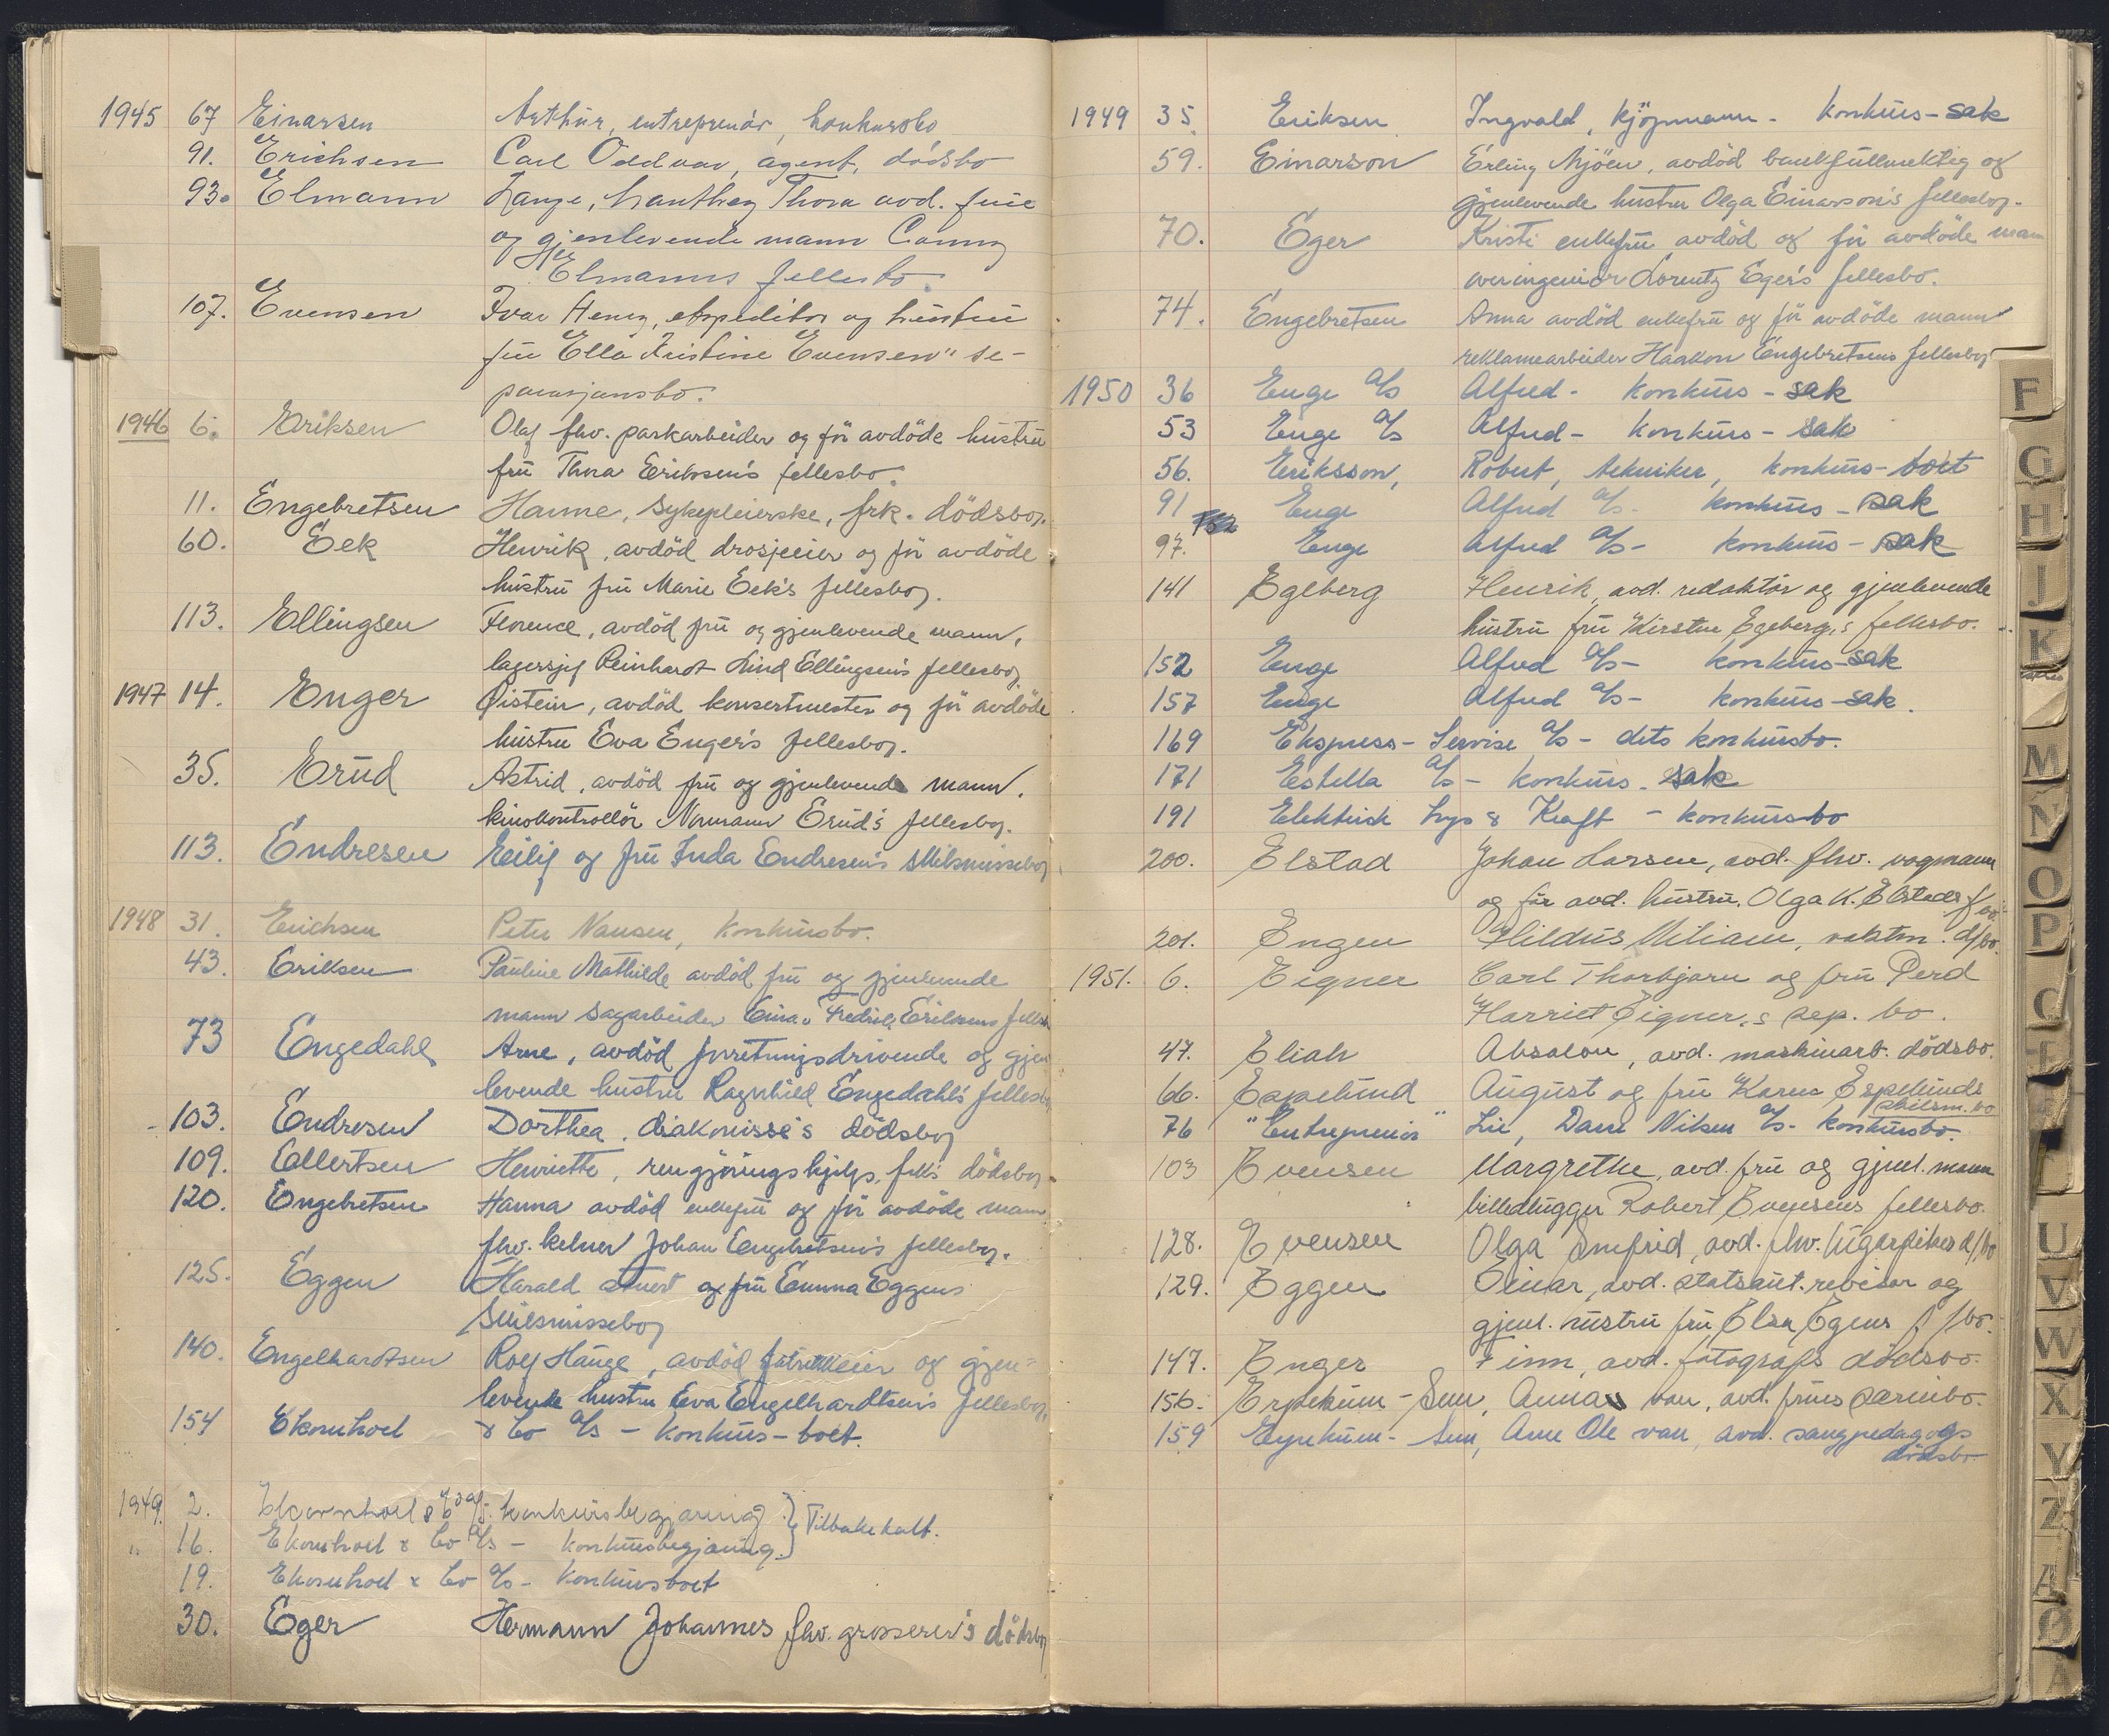 1945 67 Einarsen Arthur, entreprenör, konkursbo
91. Erichsen Carl Oddvar, agent, dödsbo
93. Elmann Lange, Thora avd. frue
og gjenlevende mann Conny
Elmanns fellesbo.
107. Evensen Ivar Henry, ekspeditör og hustru
fru Ella Kristine Evensen's se-
parasjonsbo.
1946 6. Eriksen Olaf fhv. parkarbeider og för avdöde hustru
fru Thora Eriksen's fellesbo.
11. Engebretsen Hanne, sykepleierske, frk. dödsbo.
60. Eek Henrik, avdöd drosjeeier og för avdöde
hustru fru Marie Eek's fellesbo.
113. Ellingsen Florence, avdöd fru og gjenlevende mann,
lagersjef Reinhardt Lind Ellingsen's fellesbo.
1947 14. Enger Øistein, avdöd konsertmester og för avdöde
hustru Eva Enger's fellesbo.
35. Erud Astrid, avdöd fru og gjenlevende mann,
kinokontrollör Normann Erud's fellesbo.
113. Endresen Eilif og fru Inda Endresen's skilsmissebo
1948 31. Erichsen Peter Nansen, konkursbo.
43. Eriksen Pauline Mathilde avdöd fru og gjenlevende
mann sagarbeider Einar Fredrik Eriksens felles
73 Engedahl Arne, avdöd forretningsdrivende og gjen
levende hustru Ragnhild Engedahl's fellesbo
103. Endresen Dorthea, diakonisse's dödsbo
109. Ellertsen Henriette, rengjöringshjelp, frk's dödsbo
120. Engebretsen Hanna avdöd enkefru og för avdöde mann
fhv. kelner Johan Engebretsen's fellesbo.
125. Eggen Harald og fru Emma Eggens
skilsmissebo
140. Engelhardtsen Rolf Hauge, avdöd og gjen-
levende hustru Eva Engelhardtsen's fellesbo.
154 Ekornhoel & Co A/S - konkurs-boet.
1949. 2. Ekornhoel & Co A/S. konkursbegjæring } Tilbakekalt.
" 16. Ekornhoel & Co A/S - konkursbegjæring. }
19. Ekornhoel & Co A/S - konkursboet
30. Eger Hermann Johannes fhv. grosserer's dödsbo
1949 35. Eriksen Ingvald, kjöpmann - konkurs-sak
59. Einarson Erling Mjöen, avdöd bankfullmektig og
gjenlevende hustru Olga Einarson's fellesbo.
70. Eger Kristi enkefru avdöd og för avdöde mann
overingeniör Lorentz Eger's fellesbo.
74. Engebretsen Anna avdöd enkefru og för avdöde mann
reklamearbeider Haakon Engebretsens fellesbo
1950 36 Enge A/S Alfred - konkurs - sak
53 Enge A/S Alfred - konkurs - sak
56. Eriksson, Robert, tekniker, konkurs-boet
91 Enge Alfred A/S - konkurs - sak
97. Enge Alfred A/S - konkurs - sak
141 Egeberg Henrik, avd. redaktör og gjenlevende
hustru fru Kirsten Egeberg,s fellesbo.
152 Enge Alfred A/S - konkurs-sak
157 Enge Alfred A/S - konkurs-sak.
169 Ekspress-Servise A/S - dets konkursbo.
171 Estella A/S - konkurs-sak
191 Elektrisk Lys & Kraft - konkursbo
200. Elstad Johan Larsen, avd. fhv. vognmann
og för avd. hustru. Olga K. Elstads f bo.
201. Engen Hildus Miliam, vaktm. d/bo.
1951. 6. Eigner Carl Thorbjørn og fru Perd
Harriet Eigner,s sep. bo.
47. Eliah Absalon, avd. maskinarb. dödsbo.
66. Espelund August og fru Karen Espelunds
skilsm. bo
76 "Entreprenör" Lie, Dann Nilsen A/S - konkursbo.
103 Evensen Margrethe, avd. fru og gjenl. mann
billedhugger Robert Evensens fellesbo.
128. Evensen Olga avd. fhv. d/bo
129. Eggen Einar, avd. statsaut. revisor og
gjenl. hustru fru Elsa Egens f/bo.
147. Enger Finn, avd. fotografs dödsbo.
156. Erpekum-Sem, Anna van, avd. frues særeibo.
159 Erpekum-Sem, Arne Ole van, avd. sangpedagogs
dödsbo
F
G
H
J
K
M
N
O
P
U
V
W
X
Y
Z
Æ
Ø
Å